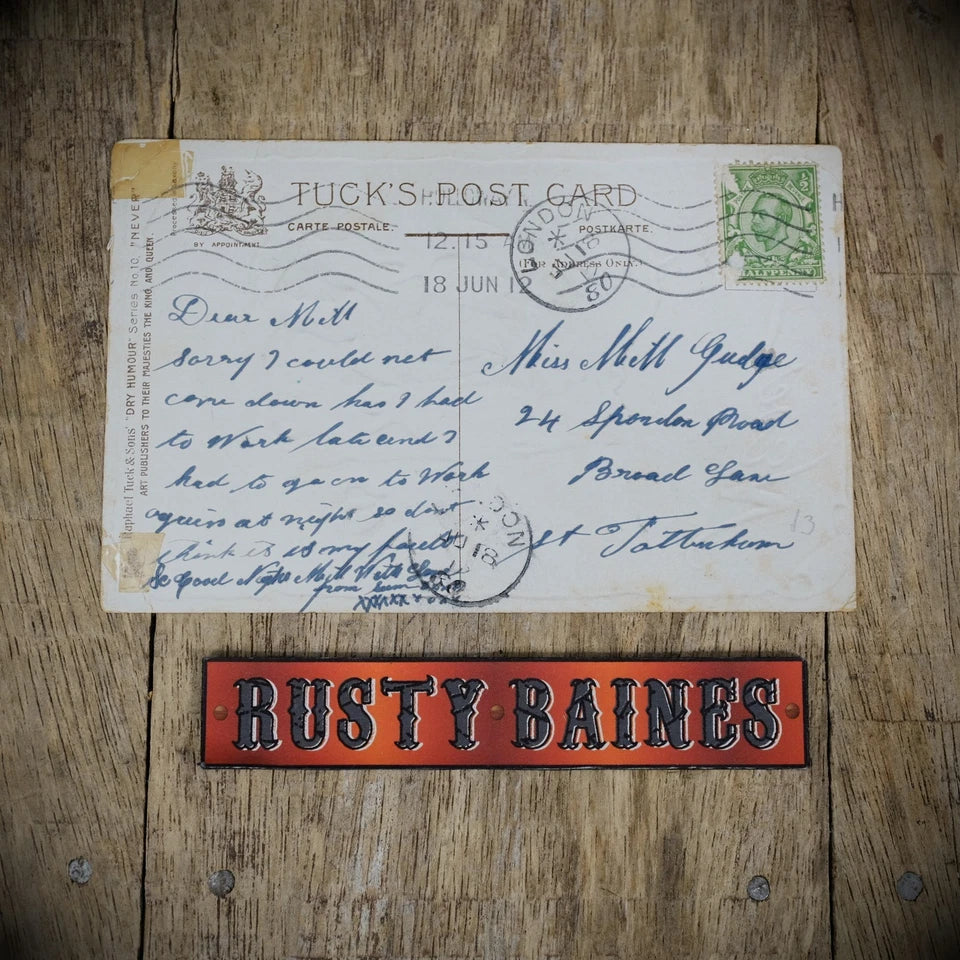 TUCK'S POST CARD
CARTE POSTALE.
POSTKARTE.
BY APPOINTMENT
(FOR ADDRESS ONLY.)
12.15
18 JUN 12
LONDON
18
80
1/2
HALFPENNY
Raphael Tuck & Sons' "DRY HUMOUR" Series No. 10. "NEVER"
ART PUBLISHERS TO THEIR MAJESTIES THE KING AND QUEEN.
Dear Mill
Sorry I could not
come down has I had
to Work late and I
had to go on to Work
again at night so dont
think it is my fault
So Good Night Mill With Love
from
Miss Mill Gudge
24 Spondon Road
Broad Lane
St Tottenham
13
RUSTY BAINES